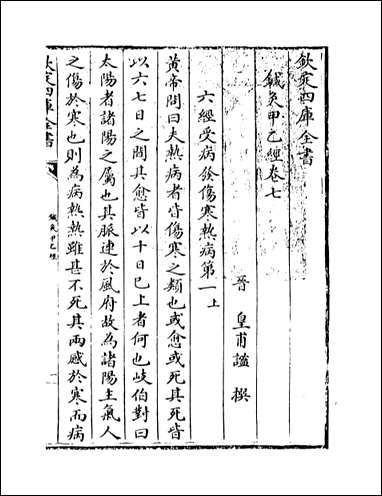 欽定四庫全書
鍼灸甲乙經卷七
晉 皇甫謐 撰
六經受病發傷寒熱病第一上
黃帝問曰夫熱病者皆傷寒之類也或愈或死其死皆
以六七日之間其愈皆以十日已上者何也岐伯對曰
太陽者諸陽之屬也其脈連於風府故為諸陽主氣人
之傷於寒也則為病熱熱雖甚不死其兩感於寒而病
欽定四庫全書
鍼灸甲乙經
一